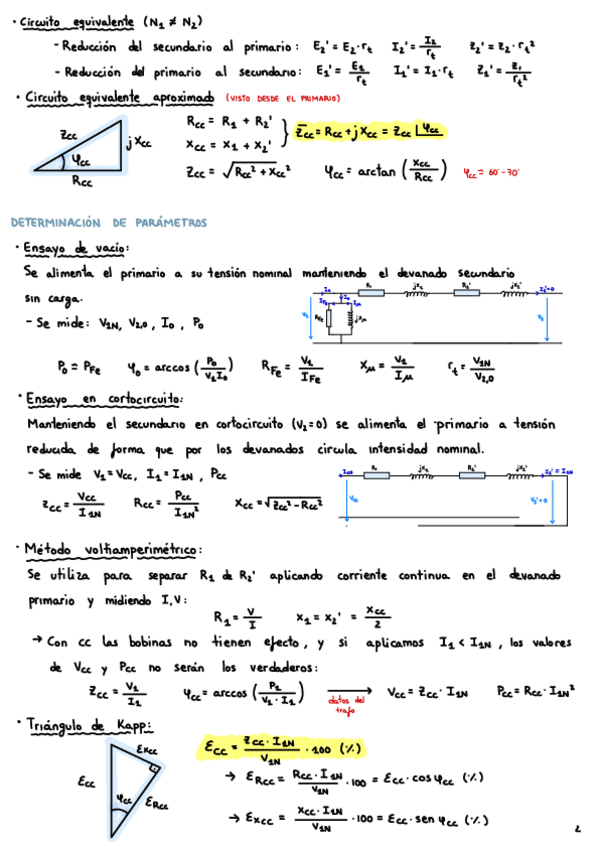 · Circuito equivalente (N₁ ≠ N₂)
- Reducción del secundario al primario: E₂' = E₂·rₜ   I₂' = I₂/rₜ   Z₂' = Z₂·rₜ²
- Reducción del primario al secundario: E₁' = E₁/rₜ   I₁' = I₁·rₜ   Z₁' = Z₁/rₜ²
· Circuito equivalente aproximado (VISTO DESDE EL PRIMARIO)
Zcc   jXcc   φcc   Rcc
Rcc = R₁ + R₂'
Xcc = X₁ + X₂'   } Z̅cc = Rcc + jXcc = Zcc∠φcc
Zcc = √(Rcc² + Xcc²)   φcc = arctan (Xcc/Rcc)   φcc = 60°-70°
DETERMINACIÓN DE PARÁMETROS
· Ensayo de vacío:
Se alimenta el primario a su tensión nominal manteniendo el devanado secundario
sin carga.
- Se mide: V₁N, V₂,₀, I₀, P₀
R₁   jX₁   R₂'   jX₂'   I₂'=0
I₀   RFe   jXμ   V₁   V₂
P₀ = PFe   φ₀ = arccos (P₀/V₁I₀)   RFe = V₁/IFe   Xμ = V₁/Iμ   rₜ = V₁N/V₂,₀
· Ensayo en cortocircuito:
Manteniendo el secundario en cortocircuito (V₂=0) se alimenta el primario a tensión
reducida de forma que por los devanados circula intensidad nominal.
- Se mide V₁ = Vcc, I₁ = I₁N, Pcc
I₁N   R₁   jX₁   R₂'   jX₂'   I₂' = I₁N
Vcc   V₂'=0
Zcc = Vcc/I₁N   Rcc = Pcc/I₁N²   Xcc = √(Zcc² - Rcc²)
· Método voltiamperimétrico:
Se utiliza para separar R₁ de R₂' aplicando corriente continua en el devanado
primario y midiendo I,V:
R₁ = V/I   X₁ = X₂' = Xcc/2
→ Con cc las bobinas no tienen efecto, y si aplicamos I₁ < I₁N, los valores
de Vcc y Pcc no serán los verdaderos:
Zcc = V₁/I₁   φcc = arccos (P₁/V₁·I₁)   datos del trafo →   Vcc = Zcc·I₁N   Pcc = Rcc·I₁N²
· Triángulo de Kapp:
εxcc   εcc   φcc   εRcc
εcc = Zcc·I₁N/V₁N · 100 (%)
→ εRcc = Rcc·I₁N/V₁N · 100 = εcc·cos φcc (%)
→ εxcc = Xcc·I₁N/V₁N · 100 = εcc·sen φcc (%)
2